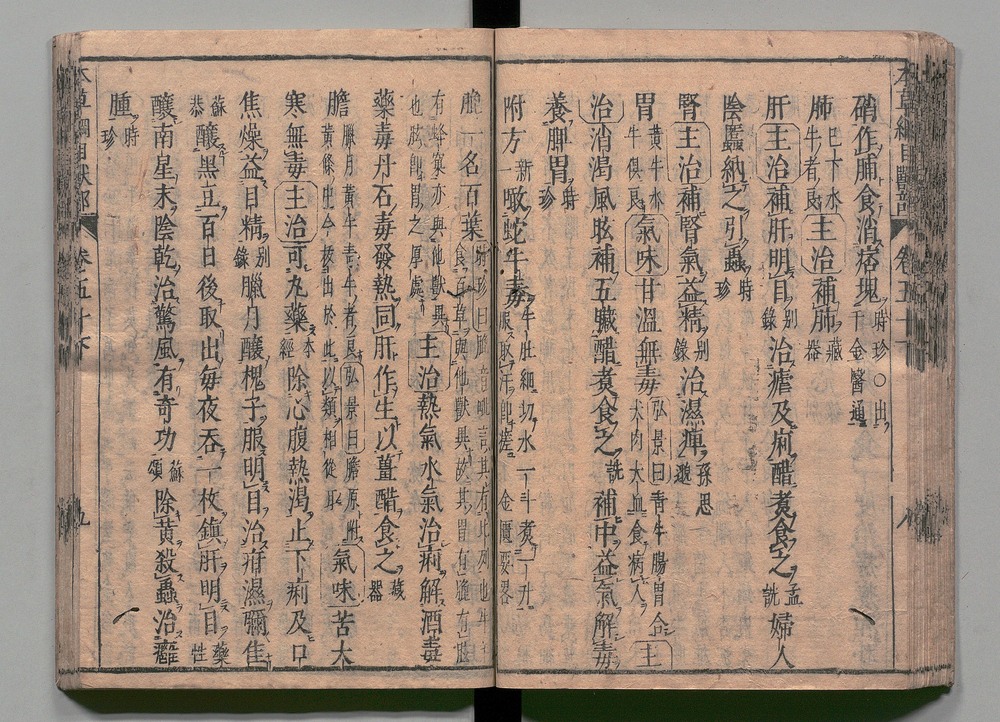 本草綱目獸部 卷五十下 八
硝作脯食消痞塊 時珍○出千金醫通
肺 巳下水牛者良 主治補肺 藏器
肝 主治補肝明目 别錄 治瘧及痢醋煮食之 孟詵 婦人
陰䘌納之引蟲 時珍
腎 主治補腎氣益精 别錄 治濕痺 孫思邈
胃 黃牛水牛俱良 氣味甘溫無毒 弘景曰青牛腸胃合犬肉犬血食病人 主
治消渴風眩補五臟醋煮食之 詵 補中益氣解毒
養脾胃 時珍
附方 新一 噉蛇牛毒 牛肚細切水一斗煮一升服取汗即瘥 金匱要畧
膍 一名百葉
也胘即胃之厚處 主治熱氣水氣治痢解酒毒
藥毒丹石毒發熱同肝作生以薑醋食之 藏器
膽 臘月黃牛青牛者良弘景曰膽原附黃條中今拔出於此以類相從耳 氣味苦大
寒無毒 主治可丸藥 本經 除心腹熱渴止下痢及口
焦燥益目精 别錄 臘月釀槐子服明目治疳濕彌佳
蘇恭 釀黑豆百日後取出每夜吞一枚鎮肝明目 藥性
釀南星末陰乾治驚風有奇功 蘇頌 除黃殺蟲治癰
腫 時珍
本草綱目獸部 卷五十下 九